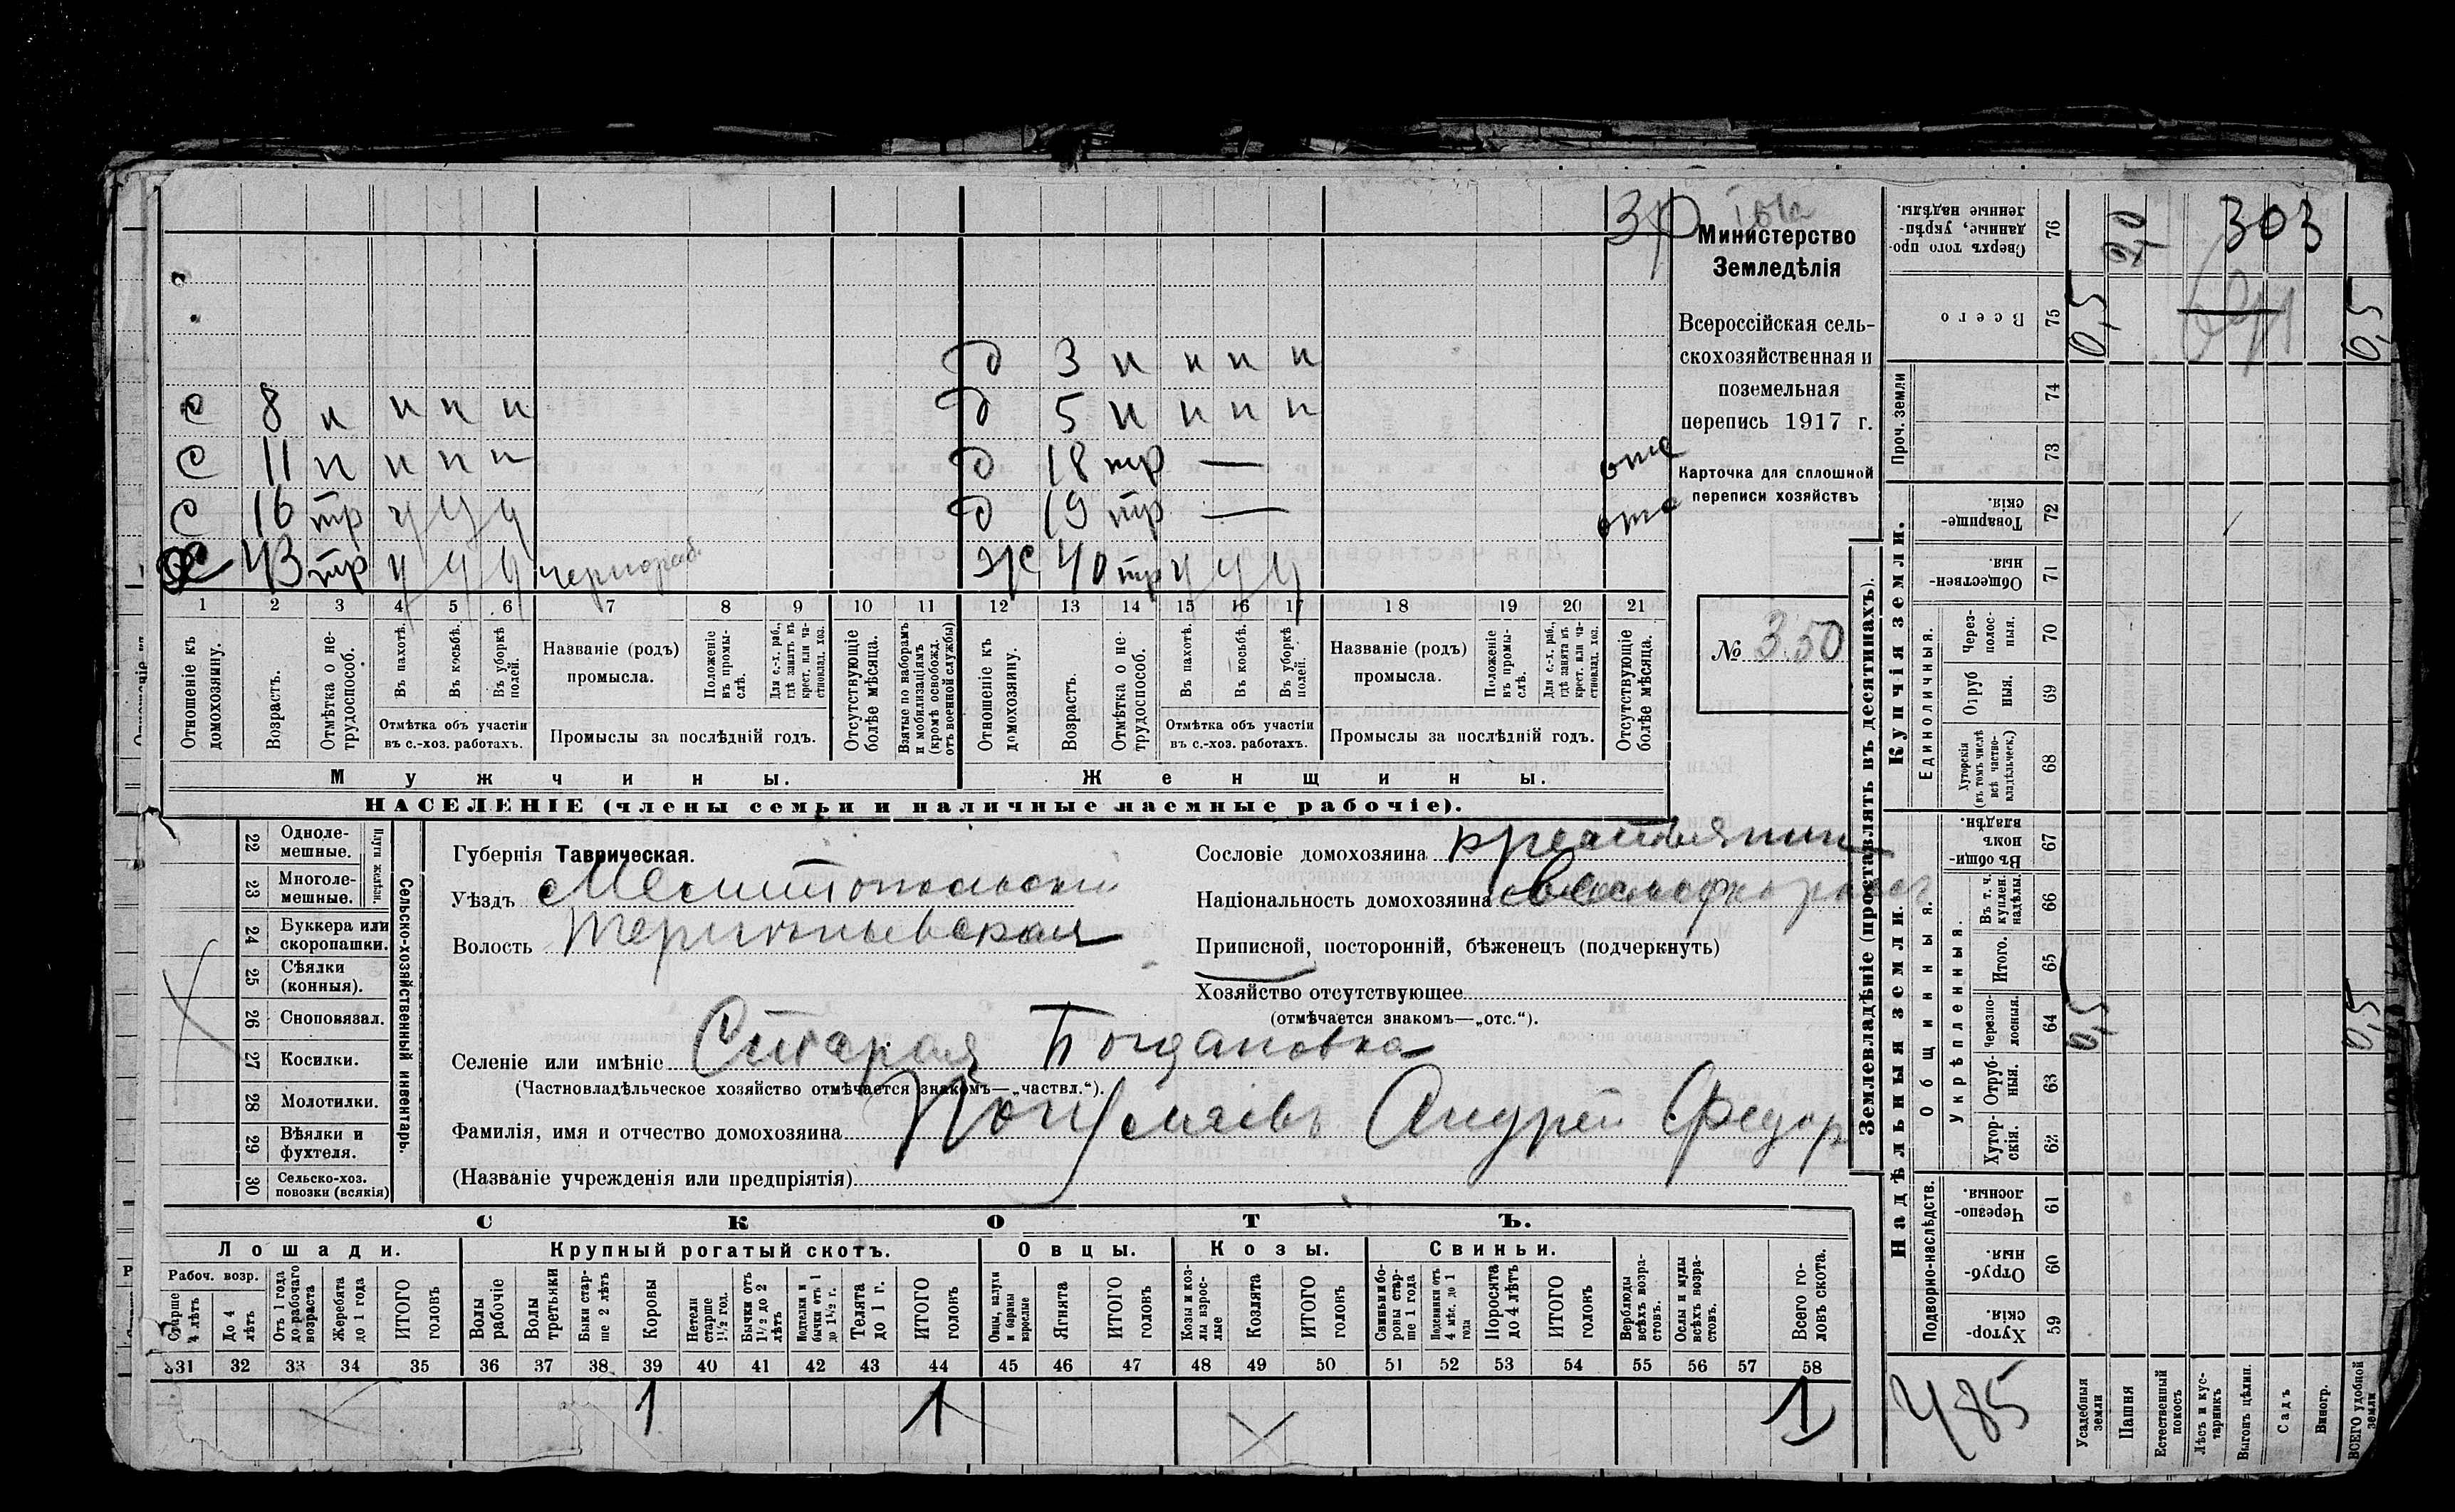 Министерство
Земледѣлія
Всероссійская сель-
скохозяйственная и
поземельная
перепись 1917 г.
Карточка для сплошной
переписи хозяйствъ
№ 350
д 3 н н н н
с 8 н н н н д 5 н н н н
с 11 н н н н д 18 тр — отс
с 16 тр у у у д 19 тр — отс
х 43 тр у у у чернораб. ж 40 тр у у у
1 2 3 4 5 6 7 8 9 10 11 12 13 14 15 16 17 18 19 20 21
Отношеніе къ домохозяину.
Возрастъ.
Отмѣтка о не-трудоспособ.
Въ пахотѣ.
Въ косьбѣ.
Въ уборкѣ полей.
Отмѣтка объ участіи въ с.-хоз. работахъ.
Названіе (родъ) промысла.
Положеніе въ промы-слѣ.
Для с.-х. раб., гдѣ занятъ въ крест. или ча-стновлад. хоз.
Промыслы за послѣдній годъ.
Отсутствующіе болѣе мѣсяца.
Взятые по наборамъ и мобилизаціямъ (кромѣ освобожд. отъ военной службы)
Отношеніе къ домохозяину.
Возрастъ.
Отмѣтка о не-трудоспособ.
Въ пахотѣ.
Въ косьбѣ.
Въ уборкѣ полей.
Отмѣтка объ участіи въ с.-хоз. работахъ.
Названіе (родъ) промысла.
Положеніе въ промы-слѣ.
Для с.-х. раб., гдѣ занята въ крест. или ча-стновлад. хоз.
Промыслы за послѣдній годъ.
Отсутствующіе болѣе мѣсяца.
Мужчины. Женщины.
НАСЕЛЕНІЕ (члены семьи и наличные наемные рабочіе).
Сельско-хозяйственный инвентарь.
Плуги желѣзн.
22 Одноле-мешные.
23 Многоле-мешные.
24 Буккера или скоропашки.
25 Сѣялки (конныя).
26 Сноповязал.
27 Косилки.
28 Молотилки.
29 Вѣялки и фухтеля.
30 Сельско-хоз. повозки (всякія)
Губернія Таврическая.
Уѣздъ Мелитопольски
Волость Терпеньевская
Сословіе домохозяина крестьянин
Національность домохозяина
Приписной, посторонній, бѣженецъ (подчеркнуть)
Хозяйство отсутствующее
(отмѣчается знакомъ—„отс.“).
Селеніе или имѣніе Старая Богдановка
(Частновладѣльческое хозяйство отмѣчается знакомъ—„частвл.“).
Фамилія, имя и отчество домохозяина Андрей Федор
(Названіе учрежденія или предпріятія)
СКОТЪ.
Лошади. Крупный рогатый скотъ. Овцы. Козы. Свиньи.
Рабоч. возр.
Старше 4 лѣтъ
До 4 лѣтъ
Отъ 1 года до рабочаго возраста
Жеребята до 1 года
ИТОГО головъ
Волы рабочіе
Волы третьяки
Быки стар-ше 2 лѣтъ
Коровы
Нетели старше 1½ год.
Бычки отъ 1½ до 2 лѣтъ
Подтелки и бычки отъ 1 до 1½ г.
Телята до 1 г.
ИТОГО головъ
Овцы, валухи и бараны взрослые
Ягнята
ИТОГО головъ
Козы и коз-лы взрос-лые
Козлята
ИТОГО головъ
Свиньи и бо-ровы стар-ше 1 года
Подсвинки отъ 4 мѣс. до 1 года
Поросята до 4 лѣтъ
ИТОГО головъ
Верблюды всѣхъ возра-стовъ.
Ослы и мулы всѣхъ возра-стовъ.
Всего го-ловъ скота.
31 32 33 34 35 36 37 38 39 40 41 42 43 44 45 46 47 48 49 50 51 52 53 54 55 56 57 58
1 1 1
Землевладѣніе (проставлять въ десятинахъ).
Надѣльныя земли. Купчія земли.
Сверхъ того про-данные, укрѣп-ленные надѣлы. 76 303
Всего 75 0,5 0,5
Проч. земли 74
73
Товарище-скія. 72
Обществен-ныя. 71
Единоличныя.
Через-полос-ныя. 70
Отруб-ныя. 69
Хуторскія (въ томъ числѣ всѣ частно-владѣльческ.) 68
Общинныя.
Въ общин-номъ владѣн. 67
Укрѣпленныя.
Въ т. ч. куплен. надѣлы. 66
Итого. 65
Черезпо-лосныя. 64 0,5 0,5
Отруб-ныя. 63
Хутор-скія. 62
Подворно-наслѣдств.
Черезпо-лосныя. 61
Отруб-ныя. 60
Хутор-скія. 59
485
Усадебныя земли
Пашня
Естественный покосъ
Лѣсъ и кус-тарникъ
Выгонъ цѣлин.
Садъ
Виногр.
ВСЕГО удобной земли